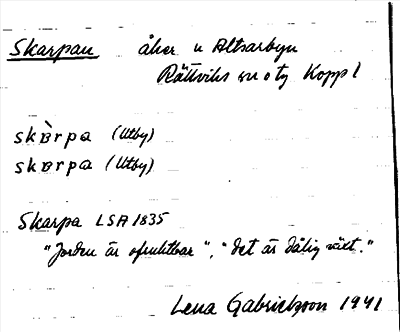 Skarpan åker u Altsarbyn
Rättviks sn o tg Koppl
skàrpa (Utby)
skarpa (Utby)
Skarpa LSA 1835
"Jorden är ofruktbar", "det är dålig växt."
Lena Gabrielsson 1941